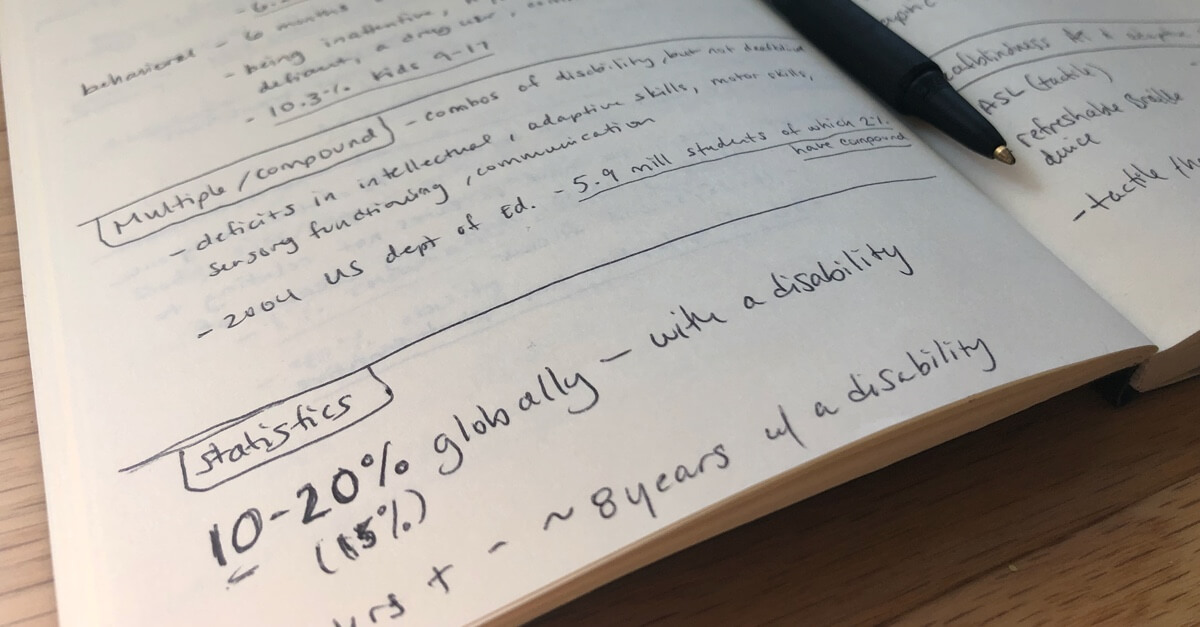 behavioral - 6 months
- being inattentive,
defiant, a drug user,
- 10.3% kids 9-17
Multiple/compound - combos of disability, but not deafblind
- deficits in intellectual, adaptive skills, motor skills,
sensory functioning, communication
- 2004 US dept of Ed. - 5.9 mill students of which 2%
have compound
statistics
10-20% globally - with a disability
(15%)
yrs + - ~8 years w/ a disability
ASL (tactile)
refreshable Braille
device
- tactile